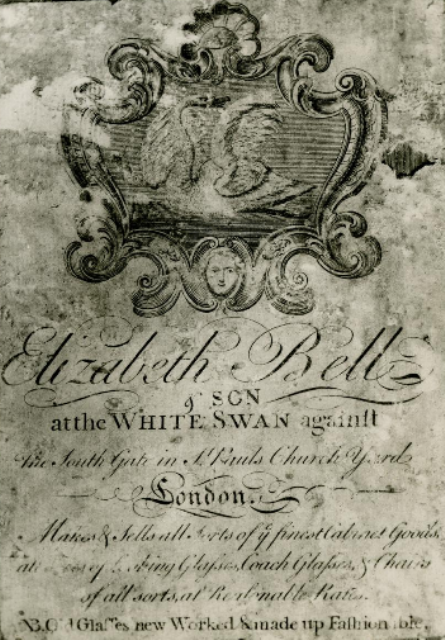 Elizabeth Bell
& SON
at the WHITE SWAN againſt
the South Gate in St. Pauls Church Yard
London.
Makes & Sells all Sorts of ye finest Cabinet Goods,
Looking Glaſses, Coach Glaſses, & Chairs
of all sorts, at Reasonable Rates.
NB. Old Glaſſes new Worked & made up Faſhionable.